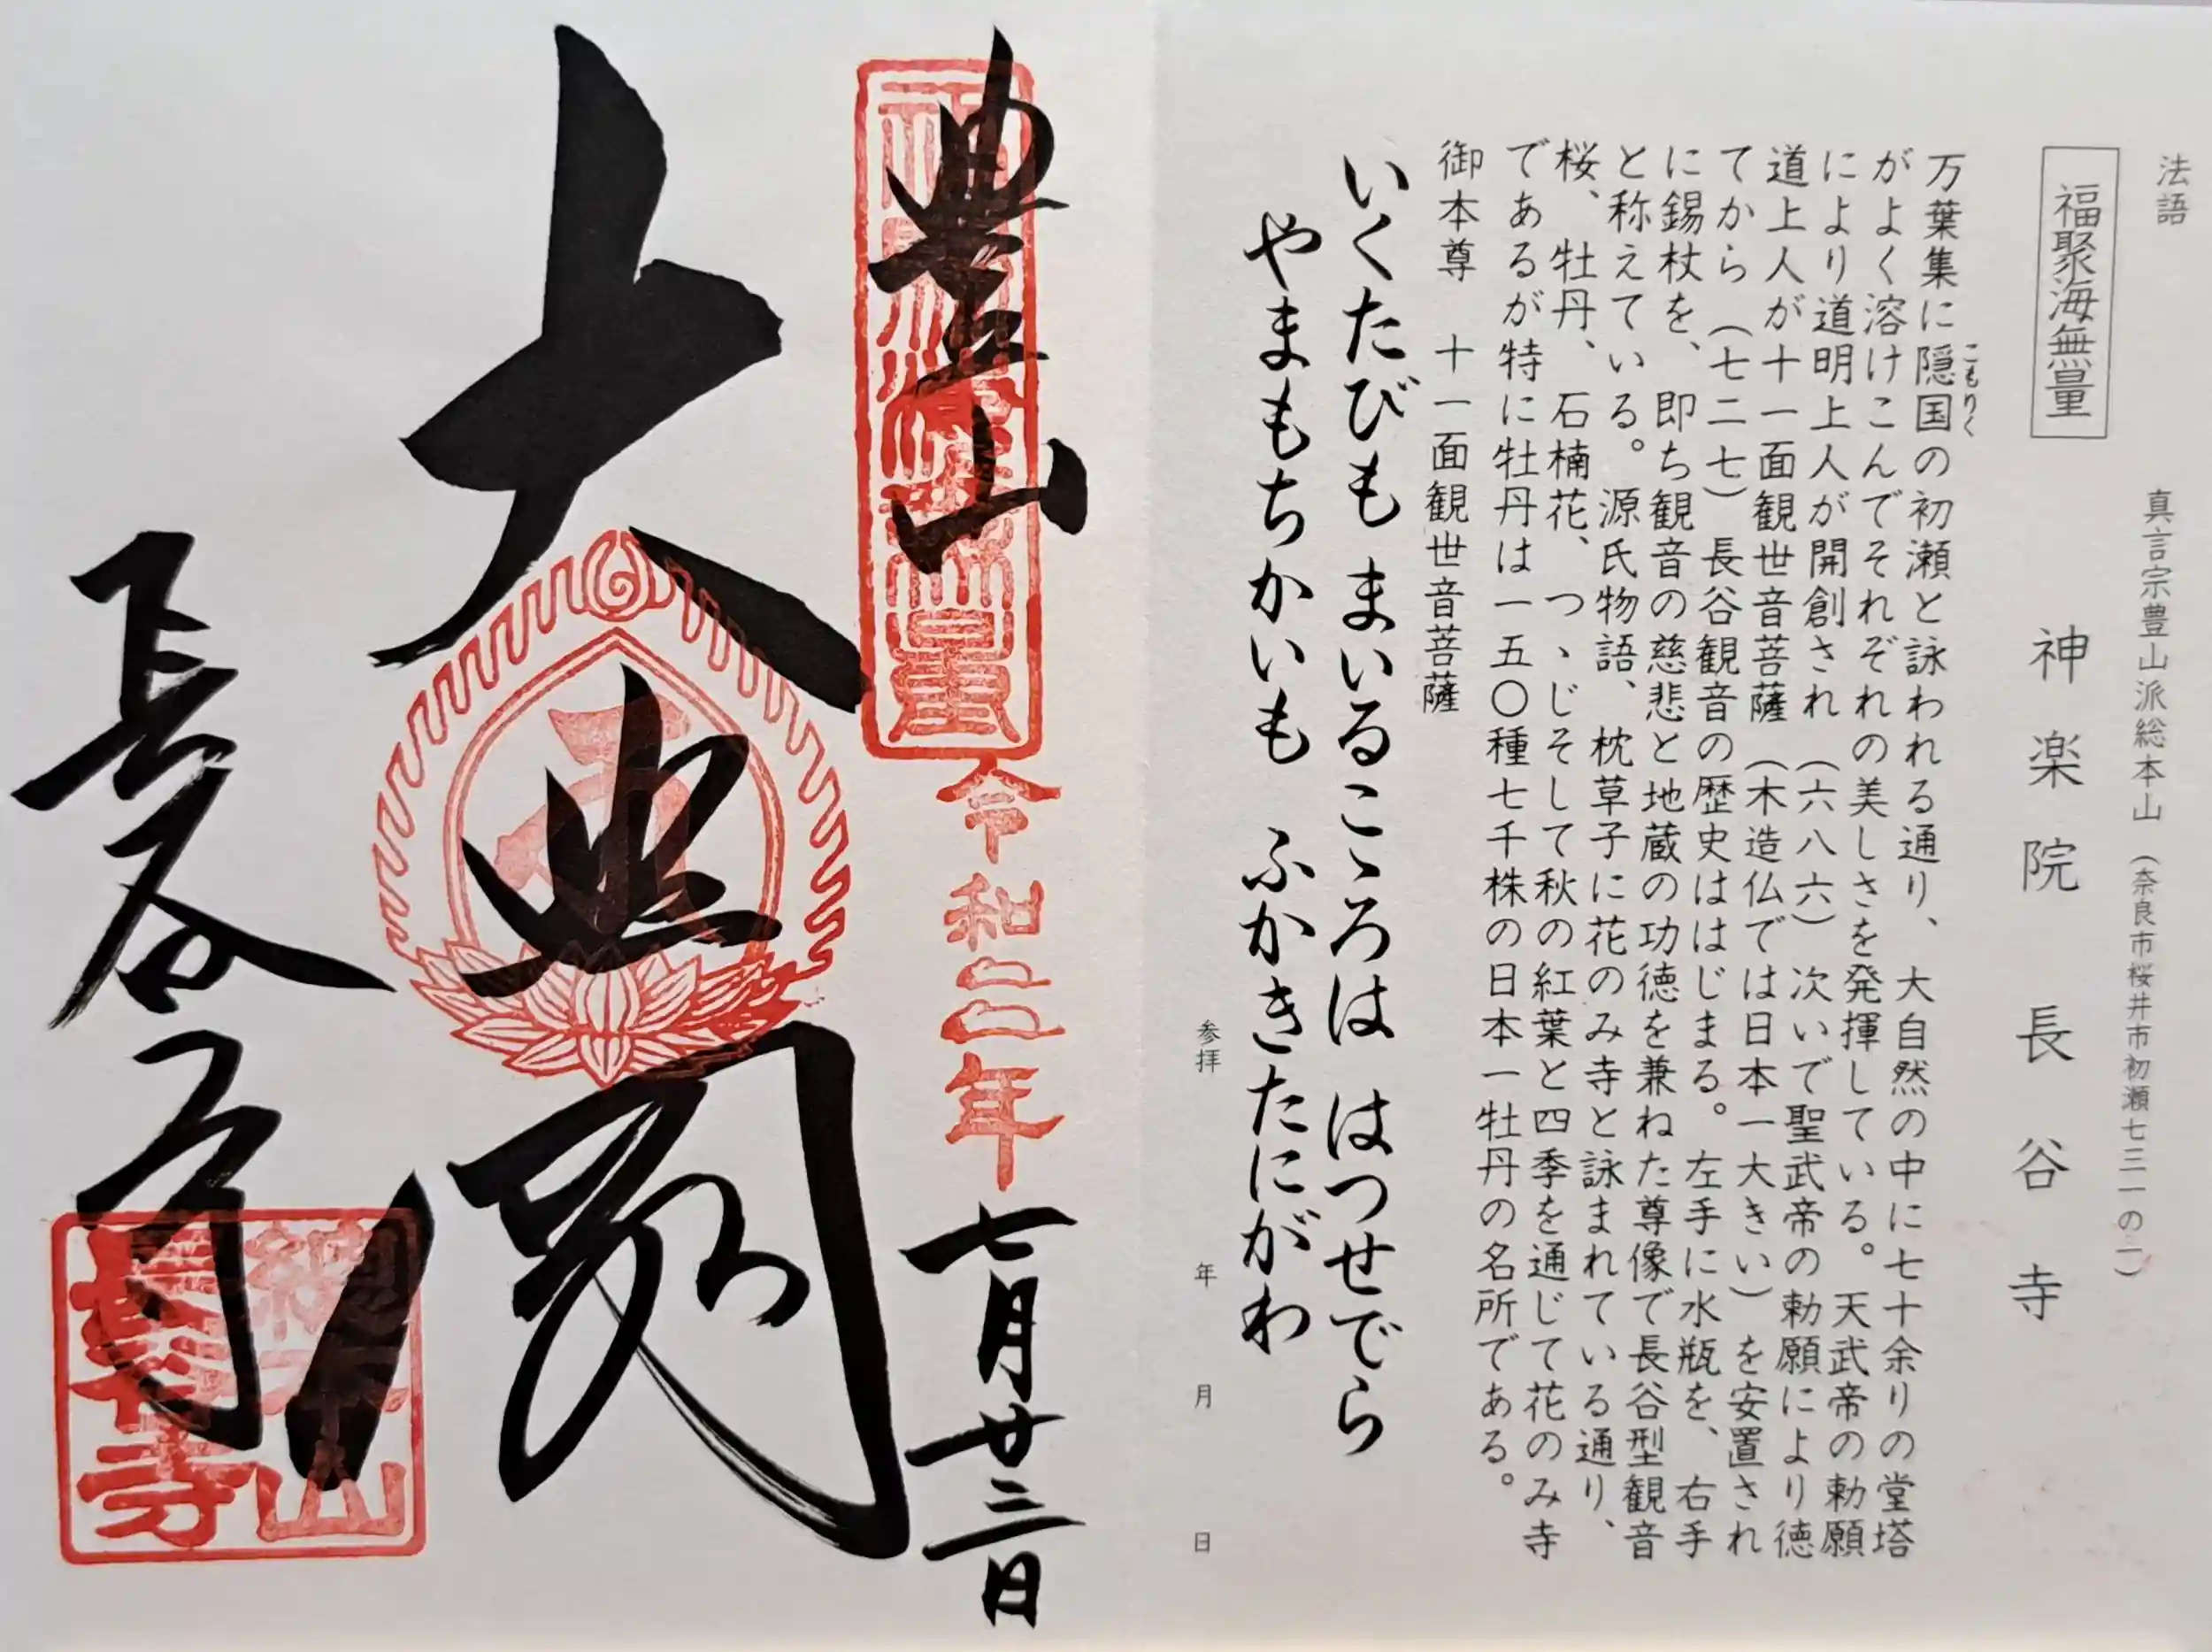 法語
福聚海無量
真言宗豊山派総本山（奈良市桜井市初瀬七三一の一）
神楽院　長谷寺
こもりく
万葉集に隠国の初瀬と詠われる通り、大自然の中に七十余りの堂塔
がよく溶けこんでそれぞれの美しさを発揮している。天武帝の勅願
により道明上人が開創され（六八六）次いで聖武帝の勅願により徳
道上人が十一面観世音菩薩（木造仏では日本一大きい）を安置され
てから（七二七）長谷観音の歴史ははじまる。左手に水瓶を、右手
に錫杖を、即ち観音の慈悲と地蔵の功徳を兼ねた尊像で長谷型観音
と称えている。源氏物語、枕草子に花のみ寺と詠まれている通り、
桜、牡丹、石楠花、つゝじそして秋の紅葉と四季を通じて花のみ寺
であるが特に牡丹は一五〇種七千株の日本一牡丹の名所である。
御本尊　十一面観世音菩薩
いくたびも まいるこゝろは はつせでら
やまもちかいも ふかきたにがわ
参拝　年　月　日
豊山
令和二年七月廿三日
大悲閣
長谷寺
総本山
長谷寺